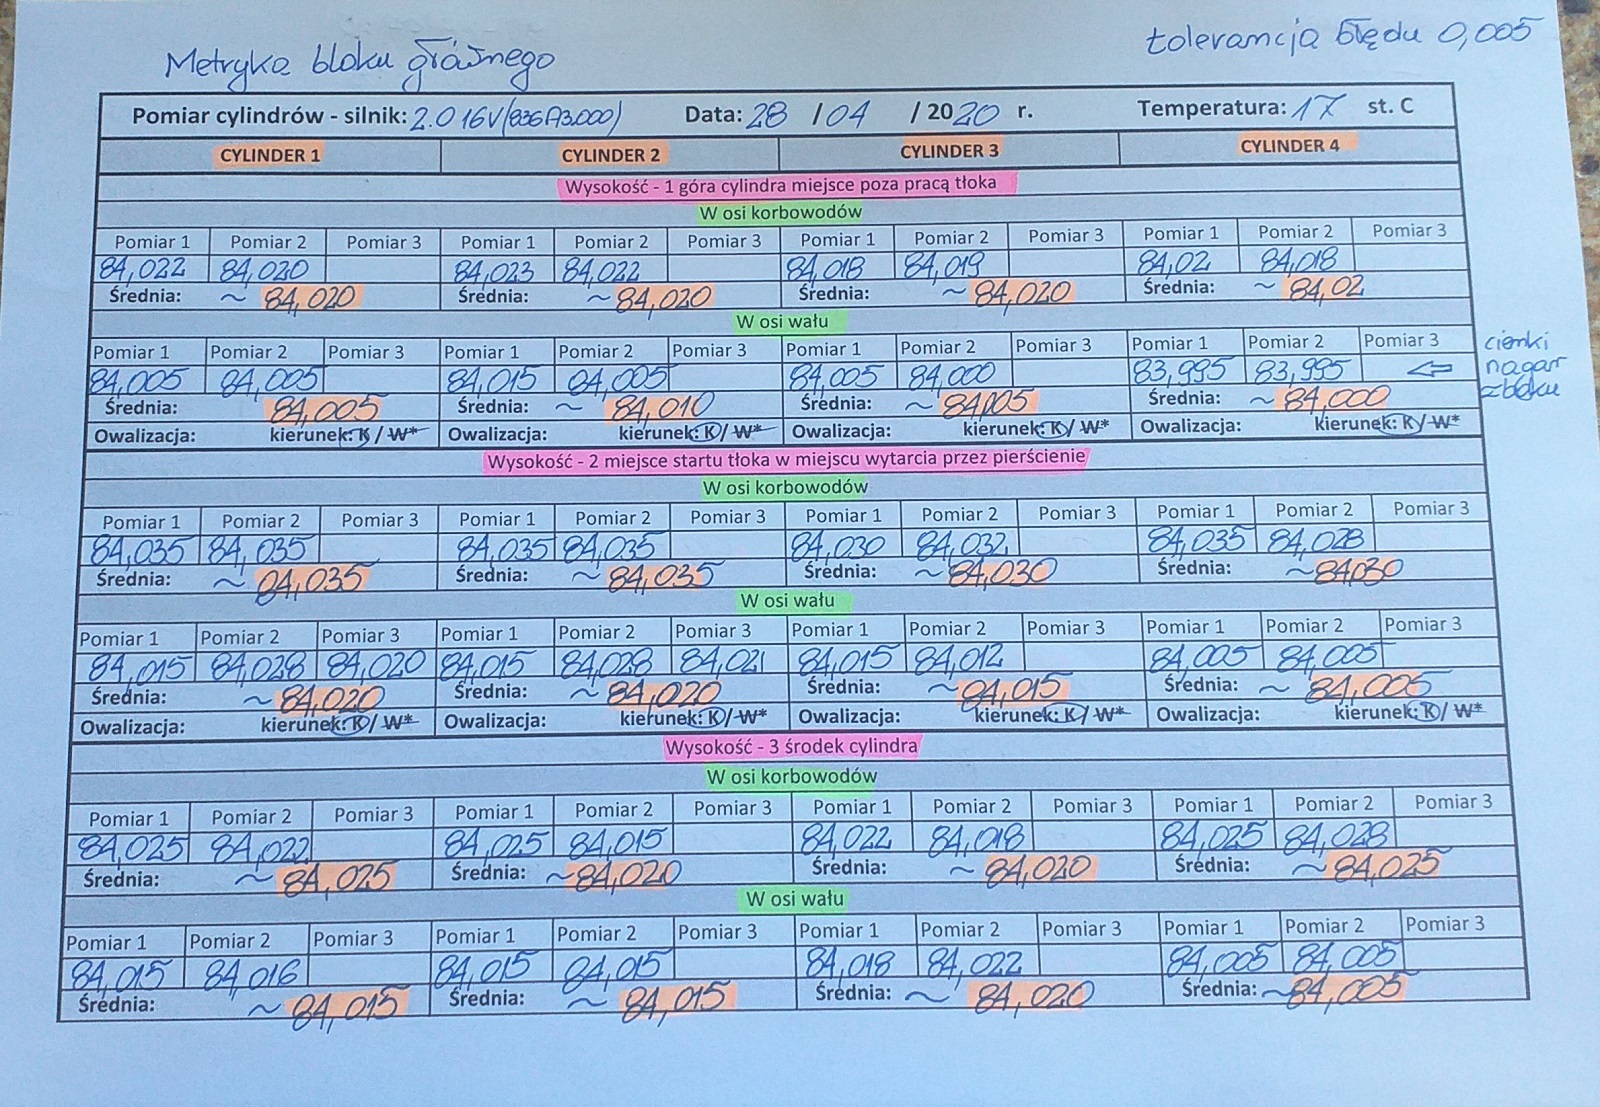 Metryka bloku głównego
tolerancja błędu 0,005
Pomiar cylindrów - silnik: 2.0 16V (836A3.000) Data: 28 / 04 / 2020 r. Temperatura: 17 st. C
CYLINDER 1 CYLINDER 2 CYLINDER 3 CYLINDER 4
Wysokość - 1 góra cylindra miejsce poza pracą tłoka
W osi korbowodów
Pomiar 1 Pomiar 2 Pomiar 3 Pomiar 1 Pomiar 2 Pomiar 3 Pomiar 1 Pomiar 2 Pomiar 3 Pomiar 1 Pomiar 2 Pomiar 3
84,022 84,020 84,023 84,022 84,018 84,019 84,02 84,018
Średnia: ~ 84,020 Średnia: ~ 84,020 Średnia: ~ 84,020 Średnia: ~ 84,02
W osi wału
Pomiar 1 Pomiar 2 Pomiar 3 Pomiar 1 Pomiar 2 Pomiar 3 Pomiar 1 Pomiar 2 Pomiar 3 Pomiar 1 Pomiar 2 Pomiar 3
84,005 84,005 84,015 84,005 84,005 84,000 83,995 83,995 ⇐ cienki nagar z boku
Średnia: 84,005 Średnia: ~ 84,010 Średnia: ~ 84,005 Średnia: ~ 84,000
Owalizacja: kierunek: K / W* Owalizacja: kierunek: K / W* Owalizacja: kierunek: K / W* Owalizacja: kierunek: K / W*
Wysokość - 2 miejsce startu tłoka w miejscu wytarcia przez pierścienie
W osi korbowodów
Pomiar 1 Pomiar 2 Pomiar 3 Pomiar 1 Pomiar 2 Pomiar 3 Pomiar 1 Pomiar 2 Pomiar 3 Pomiar 1 Pomiar 2 Pomiar 3
84,035 84,035 84,035 84,035 84,030 84,032 84,035 84,028
Średnia: ~ 84,035 Średnia: ~ 84,035 Średnia: ~ 84,030 Średnia: ~ 84,030
W osi wału
Pomiar 1 Pomiar 2 Pomiar 3 Pomiar 1 Pomiar 2 Pomiar 3 Pomiar 1 Pomiar 2 Pomiar 3 Pomiar 1 Pomiar 2 Pomiar 3
84,015 84,028 84,020 84,015 84,028 84,021 84,015 84,012 84,005 84,005
Średnia: ~ 84,020 Średnia: ~ 84,020 Średnia: ~ 84,015 Średnia: ~ 84,005
Owalizacja: kierunek: K / W* Owalizacja: kierunek: K / W* Owalizacja: kierunek: K / W* Owalizacja: kierunek: K / W*
Wysokość - 3 środek cylindra
W osi korbowodów
Pomiar 1 Pomiar 2 Pomiar 3 Pomiar 1 Pomiar 2 Pomiar 3 Pomiar 1 Pomiar 2 Pomiar 3 Pomiar 1 Pomiar 2 Pomiar 3
84,025 84,022 84,025 84,015 84,022 84,018 84,025 84,028
Średnia: ~ 84,025 Średnia: ~ 84,020 Średnia: ~ 84,020 Średnia: ~ 84,025
W osi wału
Pomiar 1 Pomiar 2 Pomiar 3 Pomiar 1 Pomiar 2 Pomiar 3 Pomiar 1 Pomiar 2 Pomiar 3 Pomiar 1 Pomiar 2 Pomiar 3
84,015 84,016 84,015 84,015 84,018 84,022 84,005 84,005
Średnia: ~ 84,015 Średnia: ~ 84,015 Średnia: ~ 84,020 Średnia: ~ 84,005